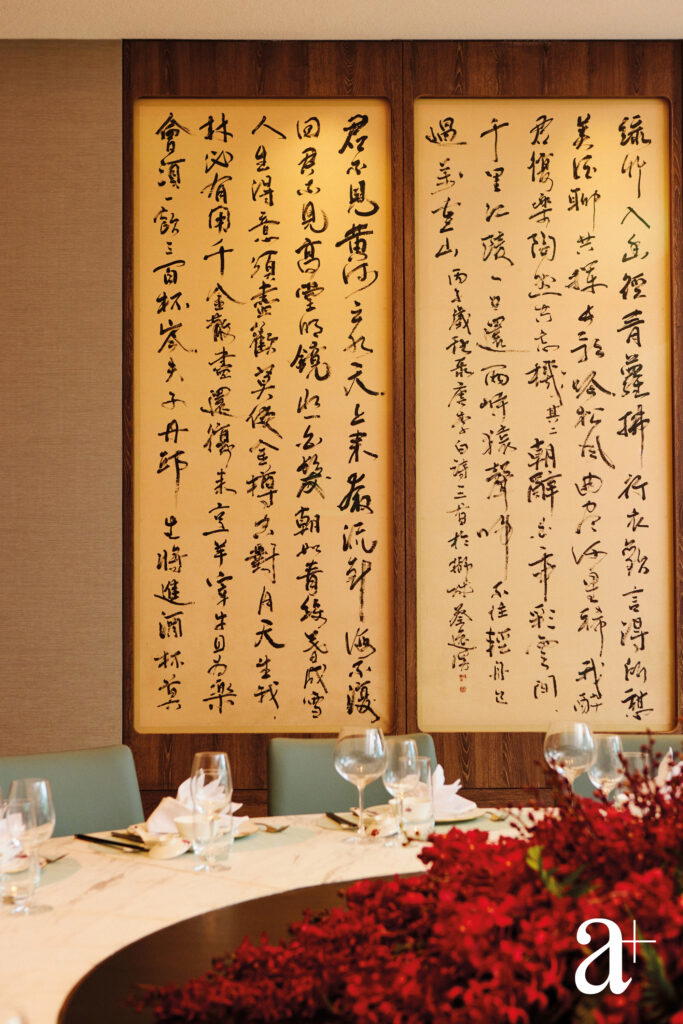 綠竹入幽徑青蘿拂行衣歡言得所憩
美酒聊共揮長歌吟松風曲盡河星稀我醉
君復樂陶然共忘機其二朝辭白帝彩雲間
千里江陵一日還兩岸猿聲啼不住輕舟已
過萬重山丙子歲秋唐李白詩三首於蔡
君不見黃河之水天上來奔流到海不復
回君不見高堂明鏡悲白髮朝如青絲暮成雪
人生得意須盡歡莫使金樽空對月天生我
材必有用千金散盡還復來烹羊宰牛且為樂
會須一飲三百杯岑夫子丹邱生將進酒杯莫
a+